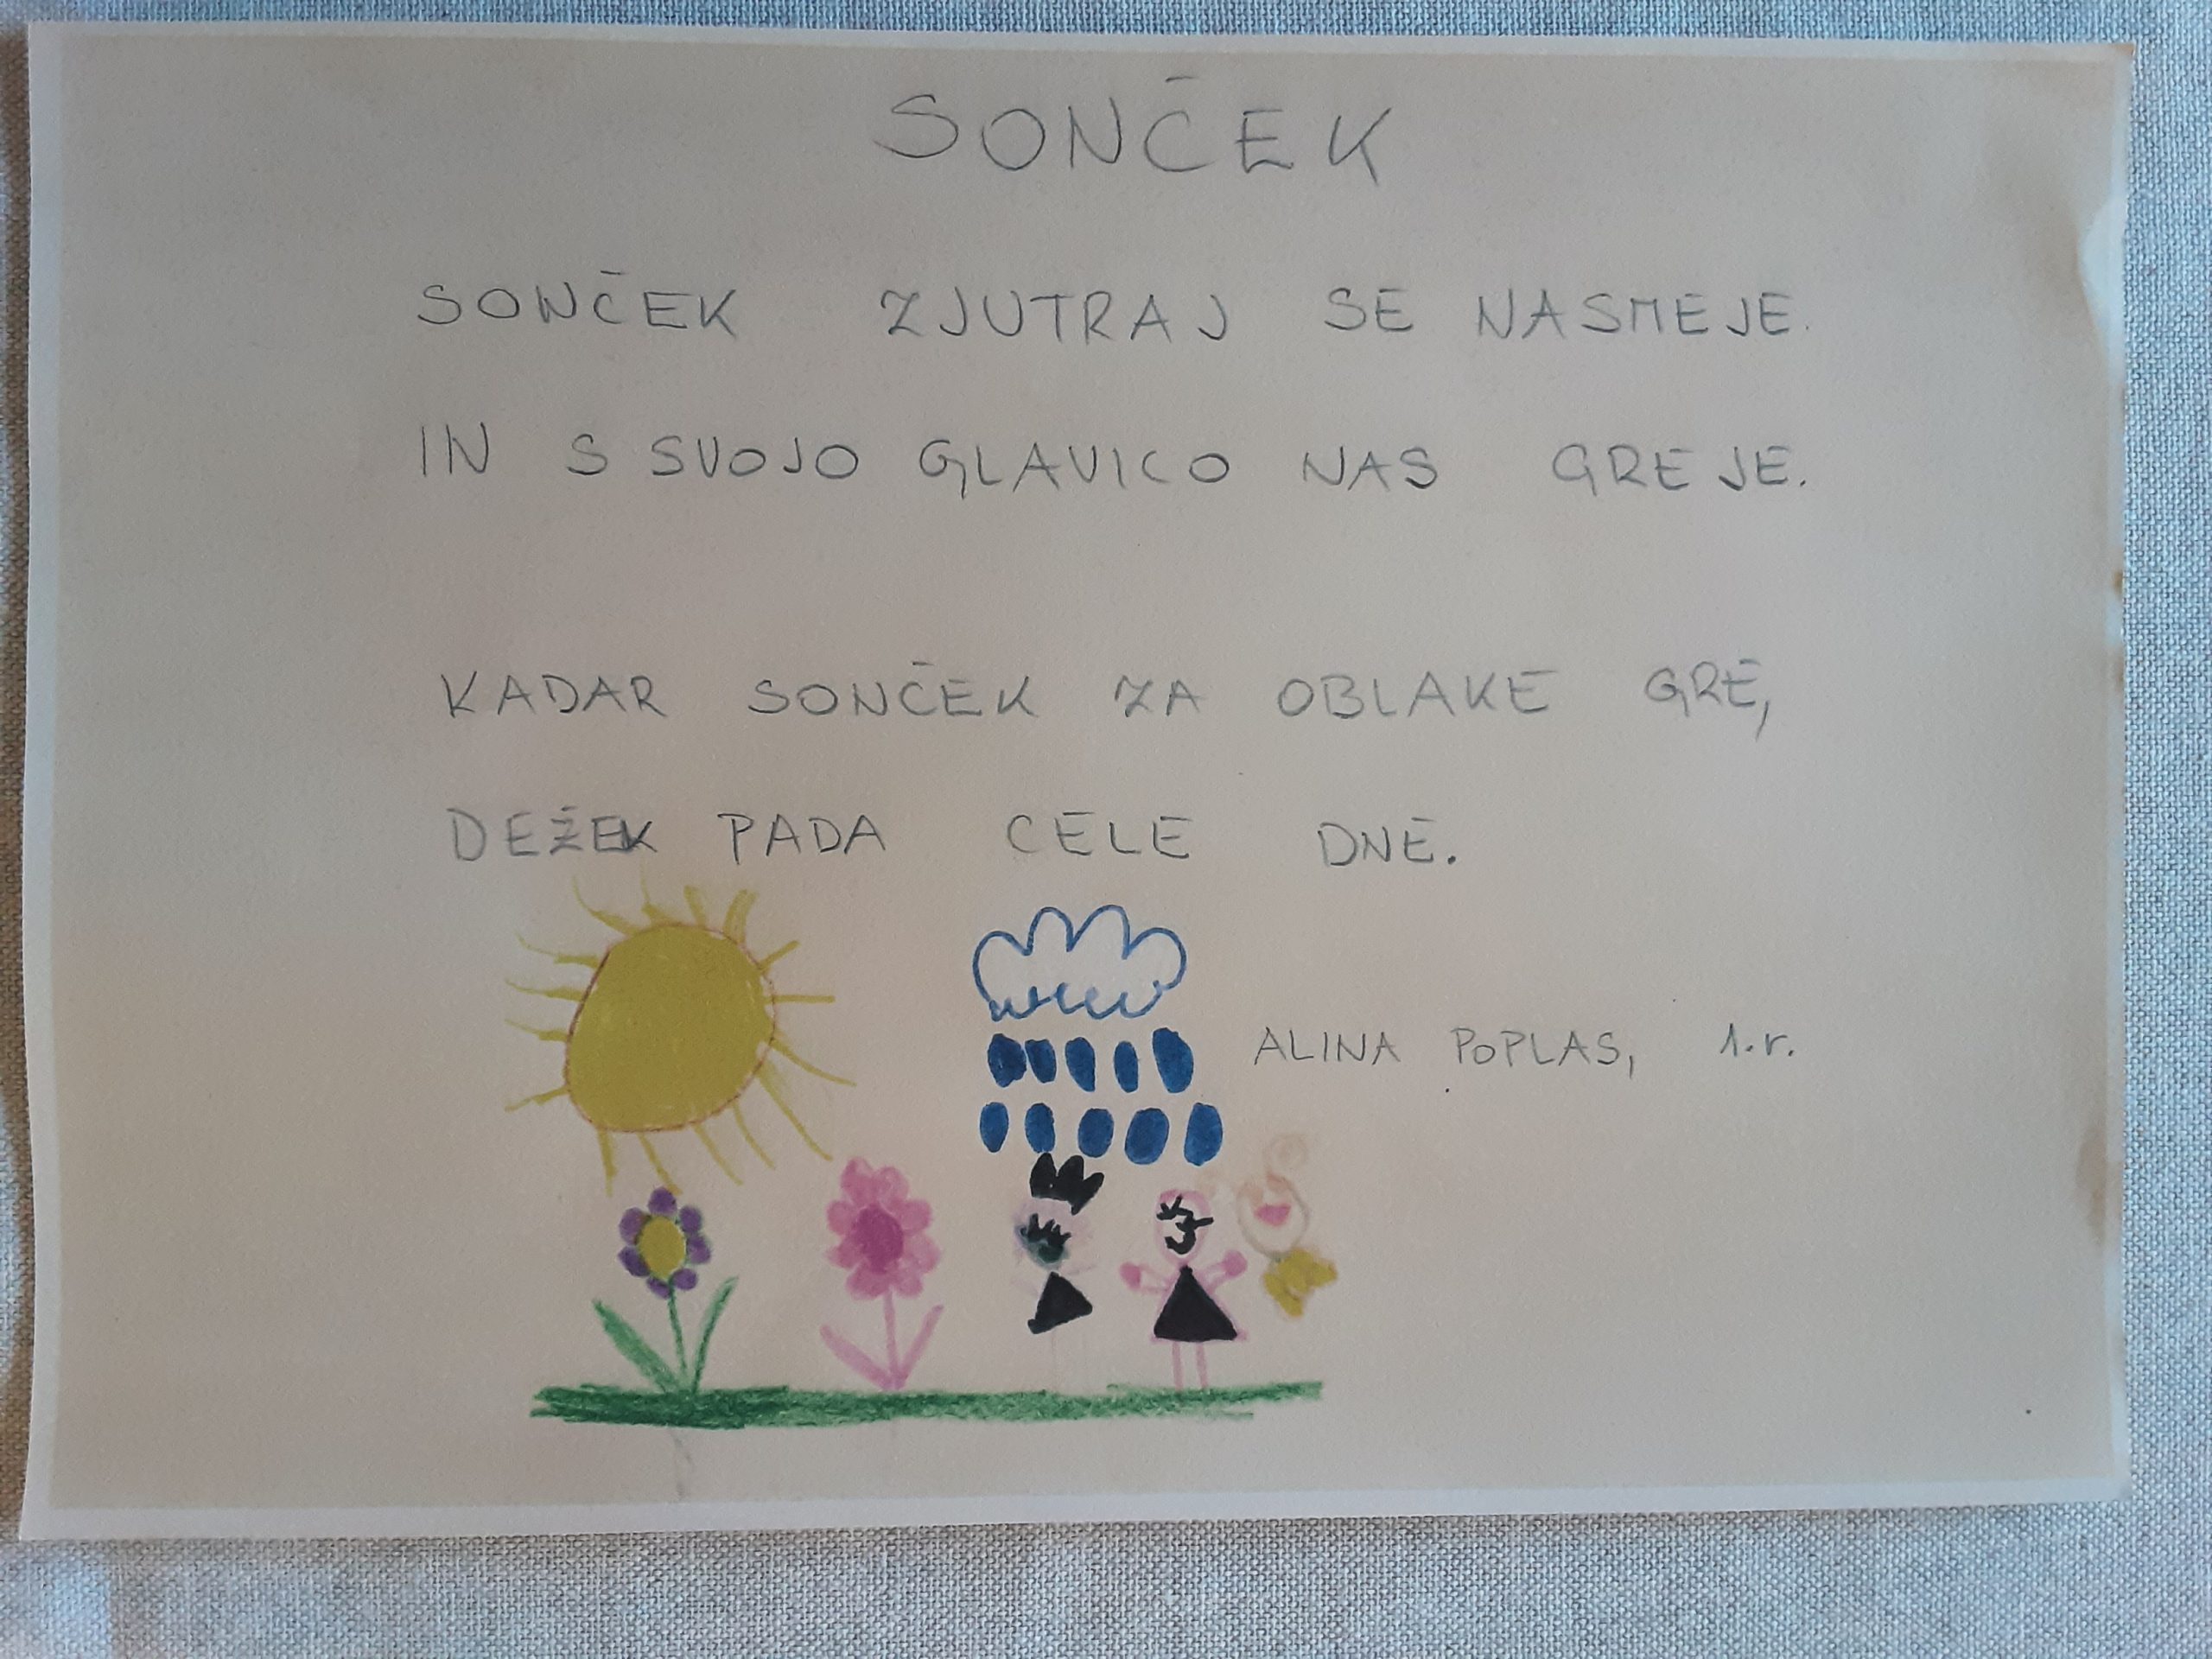 SONČEK
SONČEK ZJUTRAJ SE NASMEJE.
IN S SVOJO GLAVICO NAS GREJE.
KADAR SONČEK ZA OBLAKE GRE,
DEŽEK PADA CELE DNE.
ALINA POPLAS, 1.r.